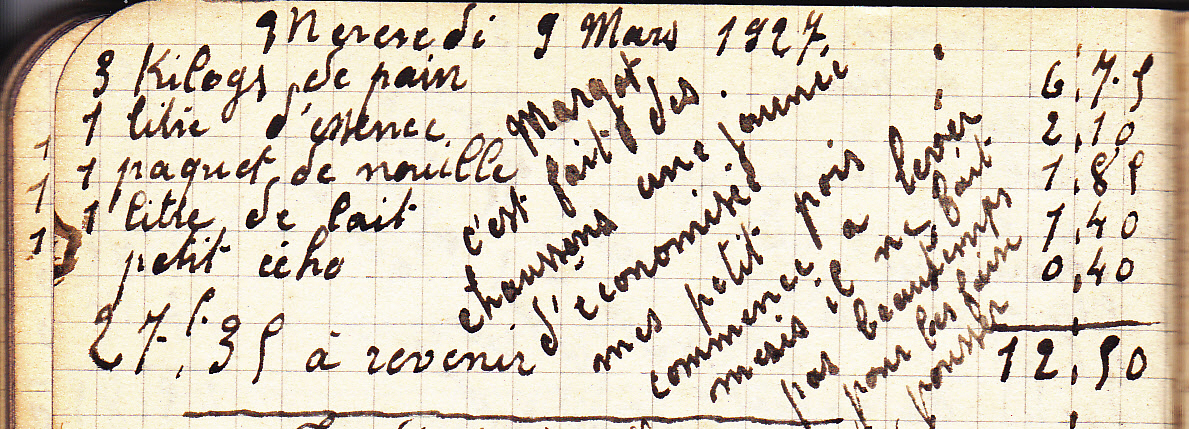 Mercredi 9 Mars 1927
3 Kilogs de pain 6,75
1 litre d'essence 2,10
1 paquet de nouille 1,85
1 litre de lait 1,40
petit écho 0,40
27f,35 à revenir 12,50
Margot
c'est fait des
chaussons une journée
d'économisé
mes petit pois
commence a lever
mais il ne fait
pas beau temps
pour les faire
pousser
1
1
1